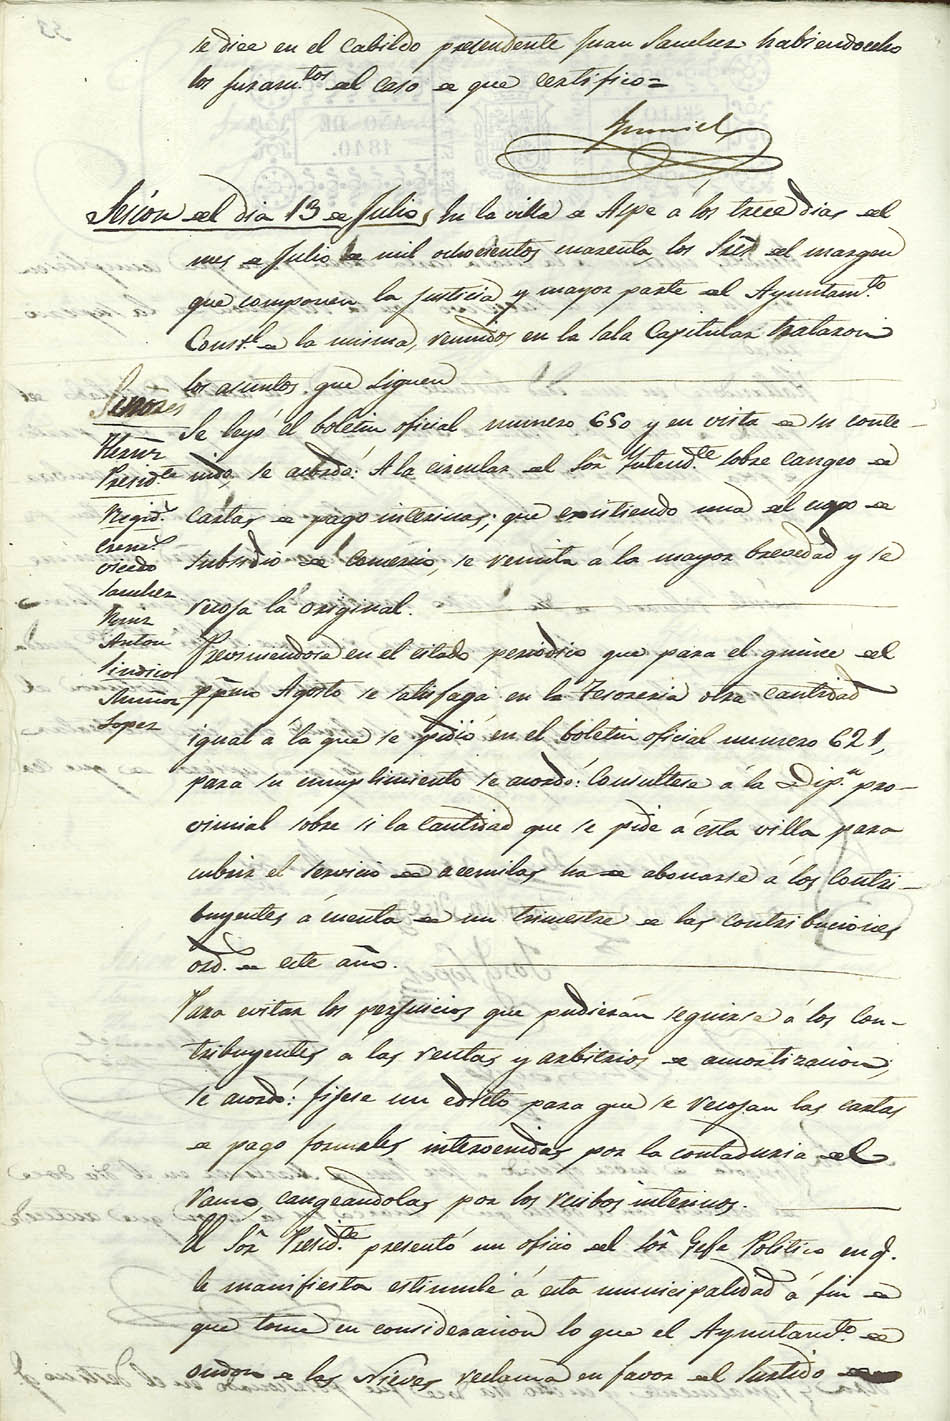 se dice en el Cabildo precendente Juan Sanchez habiendo echo
los juram.tos del caso de que certifico=
Sesion del dia 13 de Julio, En la villa de Aspe á los trece dias del
mes de Julio de mil ochocientos cuarenta, los Sres. del margen
que componen la Justicia y mayor parte del Ayuntam.to
Const.l de la misma, reunidos en la sala Capitular trataron
los asuntos que siguen
Señores
Presid.te
Regid.s
Sanchez
Anton
Sindicos
Muñoz
Lopez
Se leyó el boletin oficial numero 650 y en vista de su conte-
nido, se acordó: A la circular del Sor. Yntend.te sobre cangeo de
cartas de pago interinas, que existiendo una del cupo de
subsidio de Comercio, se remita á la mayor brevedad y se
recoja la original.
Previniendose en el citado periodico que para el quince del
ppmo Agosto se satisfaga en la Tesoreria otra cantidad
igual á la que se pidió en el boletin oficial numero 621,
para su cumplimiento se acordó: Consultese á la Dip.n pro-
vincial sobre si la cantidad que se pide á esta villa para
cubrir el servicio de acemilas ha de abonarse á los Contri-
buyentes á cuenta de un trimestre de las contribuciones
ord.s de este año.
Para evitar los perjuicios que pudieran seguirse á los Con-
tribuyentes á las rentas y arbitrios de amortizacion,
se acordó: fijese un edicto para que se recojan las cartas
de pago formales intervenidas por la contaduria del
ramo, cangeandolas por los recibos interinos.
El Sor. Presid.te presentó un oficio del Sor. Gefe Politico en q.
le manifiesta estimule á esta municipalidad á fin de
que tome en consideracion lo que el Ayuntam.to de
ondon de las Nieves reclama en favor del Partido